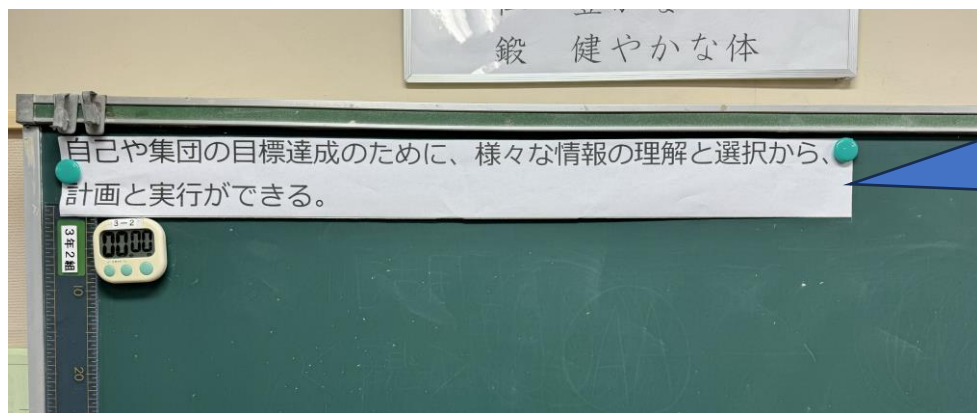 鍛 健やかな体
自己や集団の目標達成のために、様々な情報の理解と選択から、
計画と実行ができる。
3-2
00 00
3年2組
10
20